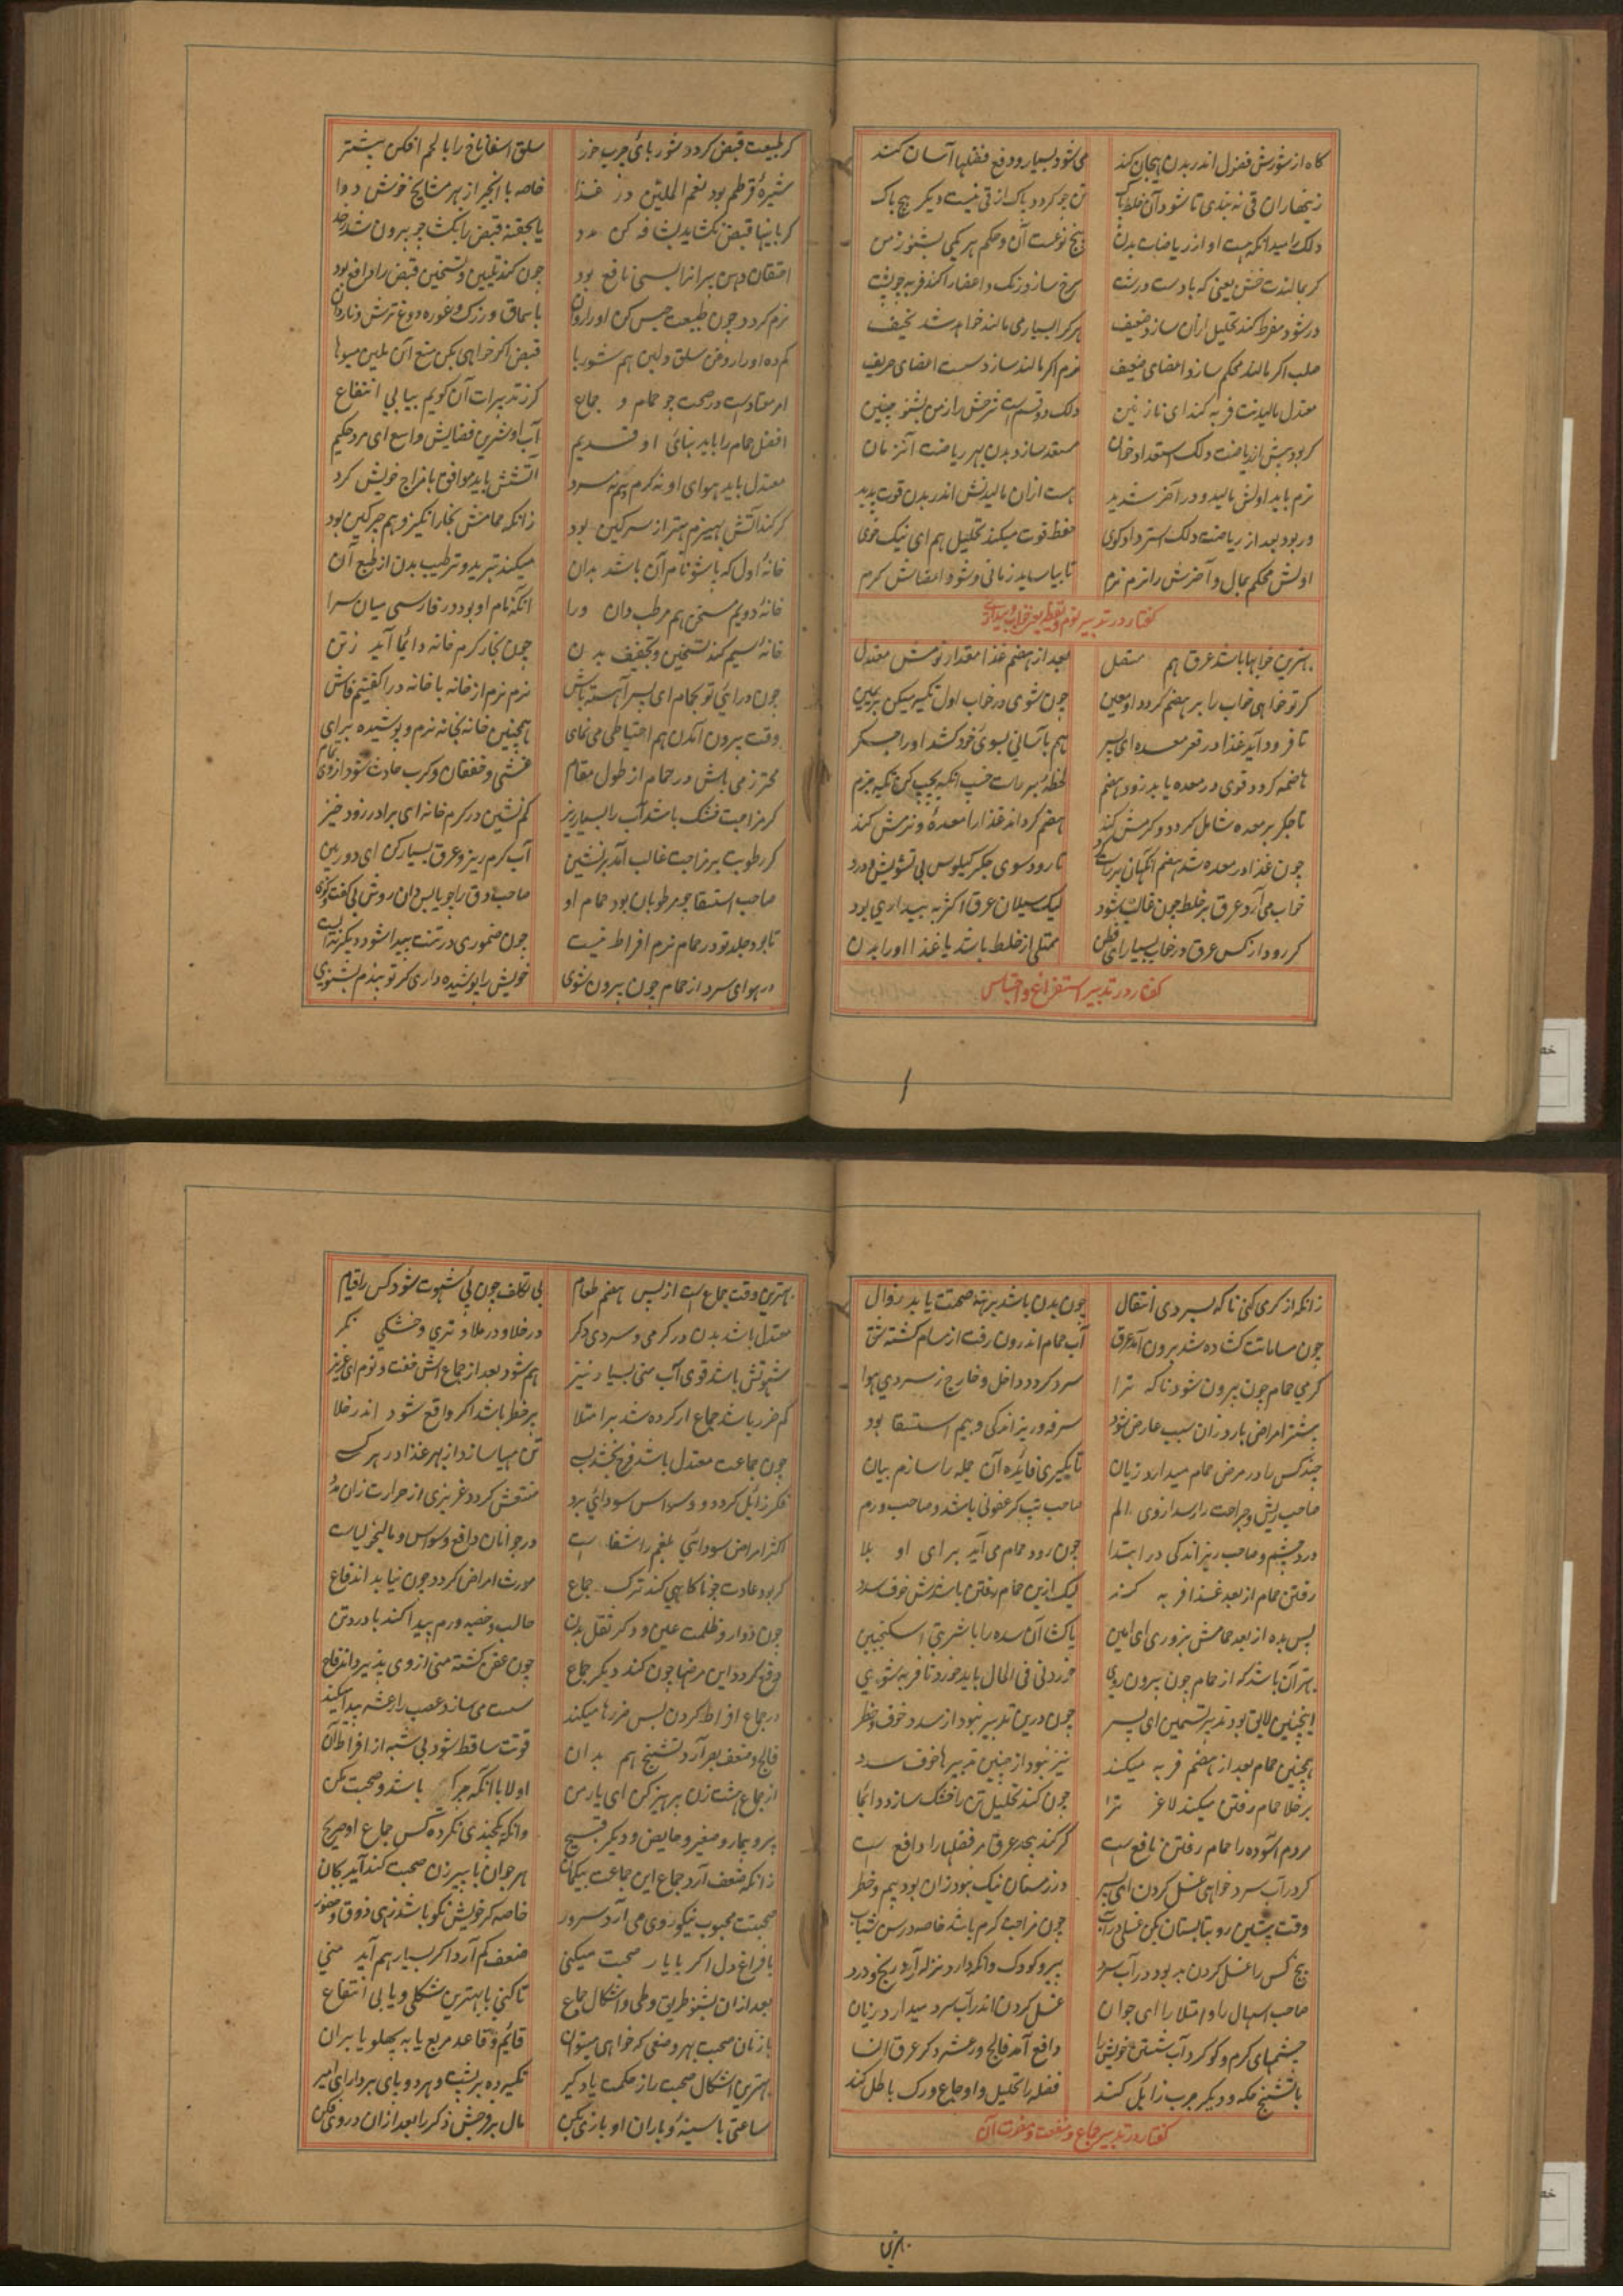 کاه از شورش فضول اندر بدن هیجان کند می شود بسیار و دفع فضلها آسان کند
زینهار ان قی نه بندی تا شود آن خلط پاک تن چو کردد پاک از قی نیست دیکر هیچ باک
پنج نوعست آن و حکم هر یکی بشنو ز من
کر بمالندت خشن یعنی که با دست درشت سرخ سازد رنک و اعضا را کند فربه چو پشت
در شود مفرط کند تحلیل ازان سازد ضعیف هر کرا بسیار می مالند خواهد شد نحیف
صلب اکر مالند محکم سازد اعضای ضعیف نرم اکر مالند سازد سست اعضای حریف
معتدل مالیدنت فربه کند ای نازنین دلک دو قسم است شرحش را ز من بشنو چنین
کر بود پیش از ریاضت دلک استعداد خوان مستعد سازد بدن بهر ریاضت آنزمان
نرم باید اولش مالید و در آخر شدید هست ازان مالیدنش اندر بدن قوت پدید
ور بود بعد از ریاضت دلک استرداد کوی حفظ قوت میکند تحلیل هم ای نیک خوی
اولش محکم بمال و آخرش را نرم نرم تا بیاساید زمانی و شود اعضاش کرم
کفتار در تدبیر نوم و یقظه یعنی خواب و بیداری
بهترین خوابها باشد عرق هم متصل بعد از هضم غذا مقدار نومش معتدل
کر تو خواهی خواب را بر هضم کردد او معین چون شوی در خواب اول تکیه میکن بر یمین
تا فرود آید غذا در قعر معده ای پسر هم بآسانی بسوی خود کشد او را جکر
هاضمه کردد قوی در معده یابد زود هضم لحظه بر راست خسب انکه بچپ کن تکیه جزم
تا جکر بر معده شامل کردد و کرمش کند هضم کرداند غذا را معده و نرمش کند
چون غذا در معده شد هضم انکهان بر راست تا رود سوی جکر کیلوس بی تشویش و درد
خواب می آرد عرق بر خلط چون غالب شود لیک سیلان عرق اکثر به بیداری بود
کر رود از کس عرق در خواب بسیار ای فطن ممتلی از خلط باشد یا غذا او را بدن
کفتار در تدبیر استفراغ و احتباس
کر طبیعت قبض کردد شوربای چرب خور سلق و اسفاناخ را با لحم افکن بیشتر
شیره قرطم بود نعم الملین در غذا خاصه با انجیر از بهر مشایخ خوش دوا
کر باینها قبض نکشاید شافه کن مدد یا بحقنه قبض را بکشا
احتقان دهن پیرانرا بسی نافع بود چون کند تلیین و تسخین قبض را دافع بود
نرم کردد چون طبیعت حبس کن او را روان با سماق و زرک و غوره دوغ ترش و ناردان
کم ده او را روغن سلق و لبن هم شوربا قبض اکر خواهی بکن منع آن ملین میوها
امر معتاد است در صحت چو حمام و جماع کر ز تدبیرات آن کویم بیابی انتفاع
افضل حمام را باید بنای او قدیم آب او شیرین فضایش واسع ای مرد حکیم
معتدل باید هوای او نه کرم نه سرد آتشش باید موافق با مزاج خویش کرد
کر کند آتش بهیزم بهتر از سرکین بود زانکه حمامش بخار انکیز و هم چرکین بود
خانه اول که باشو نام آن باشد بدان میکند تبرید و ترطیب بدن از طبع آن
خانه دویم مسخن هم مرطب دان ورا انکه نام او بود در فارسی میان سرا
خانه سیم کند تسخین و تجفیف بدن چون بخار کرم خانه دائما آید زتن
چون در آئی تو بحمام ای پسر آهسته باش نرم نرم از خانه با خانه در
وقت بیرون آمدن هم احتیاطی می نمای همچنین خانه بخانه نرم و پوشیده برای
محترز می باش در حمام از طول مقام غشی و خفقان و کرب حادث شود از وی تمام
کر مزاجت خشک باشد آب را بسیار ریز کم نشین در کرم خانه ای برادر زود خیز
کر رطوبت بر مزاجت غالب آمد بر نشین آب کرم ریز و عرق بسیار کن ای دوربین
صاحب استسقا چو مرطوبان بود حمام او صاحب دق را چو یابس دان روش بی کفت و کوی
تا بود جلد تو در حمام نرم افراط نیست چون ضموری در تنت پیدا شود دیکر
در هوای سرد از حمام چون بیرون شوی خویش را پوشیده داری کر تو پندم بشنوی
زانکه از کرمی کنی ناکه بسردی انتقال چون بدن باشد برهنه صحت یابد زوال
چون مسامات کشاده شد برون آمد عرق آب حمام اندرون رفت از مسام کشته شق
کرمی حمام چون بیرون شود ناکه ترا سرد کردد داخل و خارج ز سردی هوا
بیشتر امراض بارد زان سبب عارض شود سرفه و ریزاندکی و بیم استسقا بود
چند کس را در مرض حمام میدارد زیان تا بکیری فائده آن جمله را سازم بیان
صاحب ریش و جراحت را رسد از وی الم صاحب تب کر عفونی باشد و صاحب ورم
درد چشم و صاحب ریزاندکی در ابتدا چون رود حمام می آید برای او بلا
رفتن حمام از بعد غذا فربه کند لیک ازین حمام رفتن باشدش خوف سدد
پس بده از بعد حمامش بزوری ای امین پاک آن سده را با شربتی اسکنجبین
بهتر آن باشد که از حمام چون بیرون روی خوردنی فی الحال باید خورد تا فربه شوی
اینچنین لایق بود تدبیر تسمین ای پسر چون درین تدبیر نبود از سدد خوف و خطر
همچنین حمام بعد از هضم فربه میکند نیز نبود از چنین تدبیرها خوف سدد
بر خلا حمام رفتن میکند لاغر ترا چون کند تحلیل تن را خشک سازد دائما
مردم آسوده را حمام رفتن نافع است کر کند بحد عرق مر فضلها را دافع است
کر در آب سرد خواهی غسل کردن ای پسر در زمستان نیک نبود زان بود بیم و خطر
وقت پیشین رو بتابستان بکن غسلی در آب چون مزاجت کرم باشد خاصه در سن شباب
هیچ کس را غسل کردن بد بود در آب سرد پیر و کودک وانکه دارد نزله آرد رنج و درد
صاحب اسهال را و امتلا را ای جوان غسل کردن اندر آب سرد میدارد زیان
چشمهای کرم و کوکرد آب شستن خویش را دافع آمد فالج و رعشه دکر عرق النسا
با تشنج حکه و دیکر جرب زایل کند فضله را تحلیل و اوجاع ورک باطل کند
کفتار در تدبیر جماع و منفعت و مضرت آن
بهترین وقت جماع است از پس هضم طعام بی تکلف چون پی شهوت شود کس را قیام
معتدل باشد بدن در کرمی و سردی دکر در خلا و در ملا و تری و خشکی نکر
شهوتش باشد قوی آب منی بسیار نیز هم شود بعد از جماع اش خفت و نوم ای عزیز
کم ضرر باشد جماع ار کرده شد بر امتلا پر خطر باشد اکر واقع شود اندر خلا
چون جماعت معتدل باشد فرح بخشد تن مهیا سازد از بهر غذا
فکر زایل کردد و وسواس سودائی برد منتعش کردد غریزی از حرارت زان
اکثر امراض سودائی بلغم را شفا است در جوانان دافع وسواس و مالیخولیاست
کر بود عادت چو ناکاهی کند ترک جماع مورث امراض کردد چون نیابد اندفاع
چون دوار و ظلمت عین و دکر ثقل بدن حالب و خصیه ورم پیدا کند با درد تن
دفع کردد این مرضها چون کند دیکر جماع چون عفن کشته منی از وی پذیرد اندفاع
در جماع افراط کردن بس ضررها میکند سست می سازد عصب را رعشه پیدا میکند
فالج و ضعف بصر آرد تشنج هم بدان قوت ساقط شود بی شبه از افراط آن
از جماع هشت زن پرهیز کن ای یار من اولا با آنکه باشد صحبت مکن
پیر و بیمار و صغیر و حایض و دیکر قبیح وانکه یکچندی نکرده کس جماع او صریح
زانکه ضعف آرد جماع این جماعت بیکمان هر جوان با پیر زن صحبت کند آید بجان
صحبت محبوب نیکو روی می آرد سرور خاصه کر خویش نکو باشد زهی ذوق و حضور
با فراغ دل اکر با یار صحبت میکنی ضعف کم آرد اکر بسیار هم آید منی
بعد ازان بشنو طریق وطی و اشکال جماع تا کنی با بهترین شکلی و یابی انتفاع
با زنان صحبت بهر وضعی که خواهی میتوان قائم و قاعد مربع یا به پهلو یا بران
بهترین اشکال صحبت را ز حکمت یاد کیر تکیه ده بر پشت و هر دو پای بردار ای امیر
ساعتی با سینه و با ران او بازی بکن مال بر فرجش ذکر را بعد ازان در وی فکن